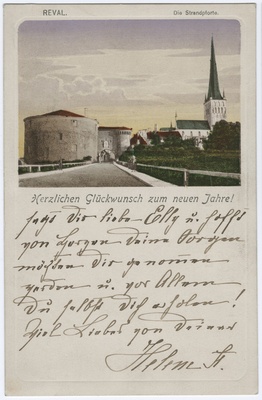 REVAL. Die Strandpforte.
Herzlichen Glückwunsch zum neuen Jahre!
sagt Dir liebe Elly u. hofft
von Herzen Deine Sorgen
möchten Dir genommen
werden u. vor Allem
Du selbst Dich erholen!
Viel Liebes von Deiner
Helene